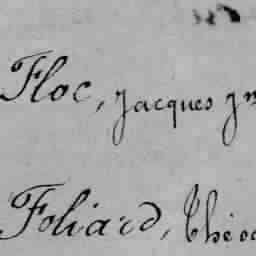 Floc, Jacques Jn
Foliard, Théo